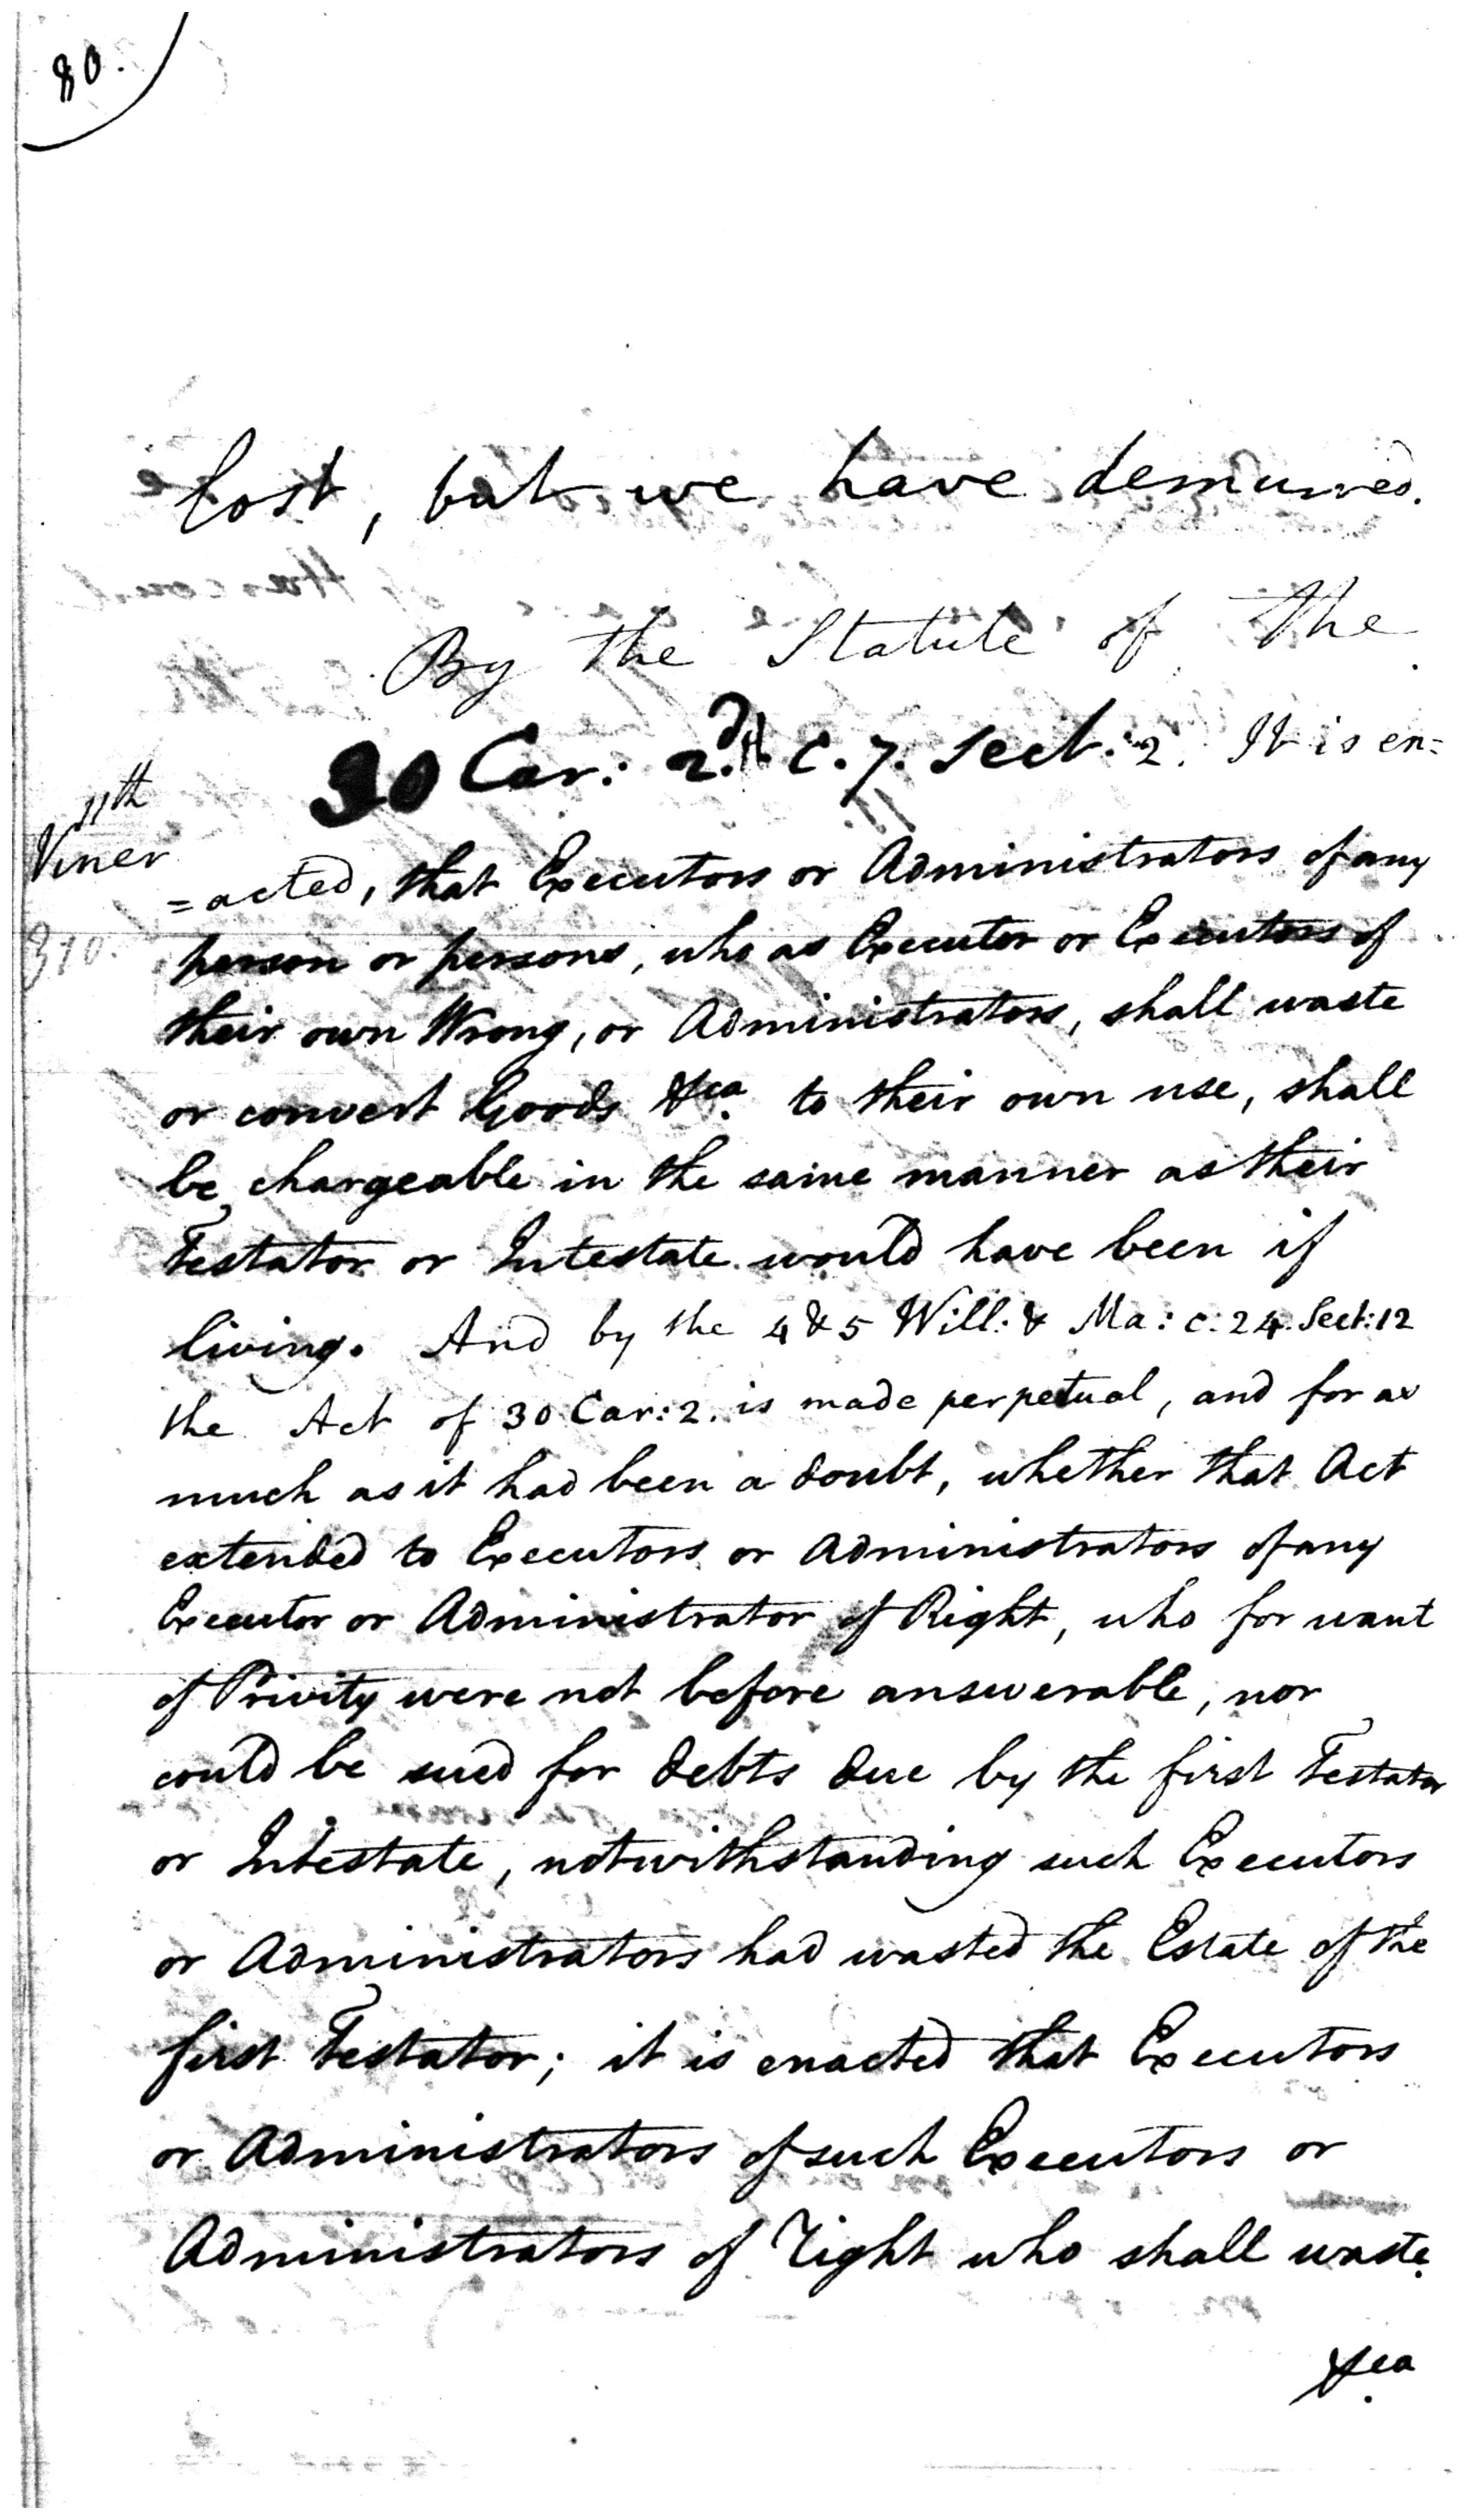 80.
lost, but we have demurred.
By the Statute of the
30 Car: 2.d c. 7. Sect: 2. It is en=
11th
Viner
310.
=acted, that Executors or Administrators of any
person or persons, who as Executor or Executors of
their own Wrong, or Administrators, shall waste
or convert Goods &ca. to their own use, shall
be chargeable in the same manner as their
Testator or Intestate would have been if
living. And by the 4 & 5 Will: & Ma: c: 24. Sect: 12
the Act of 30 Car: 2. is made perpetual, and for as
much as it had been a doubt, whether that Act
extended to Executors or Administrators of any
Executor or Administrator of Right, who for want
of Privity were not before answerable, nor
could be sued for debts due by the first Testator
or Intestate, notwithstanding such Executors
or Administrators had wasted the Estate of the
first Testator; it is enacted that Executors
or Administrators of such Executors or
Administrators of Right who shall waste
&ca.